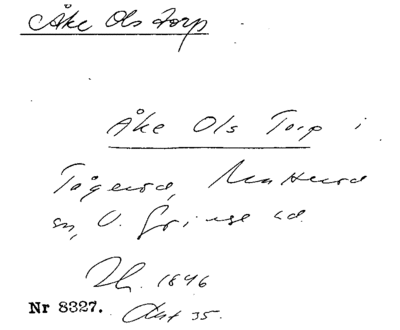 Åke Ols Torp
Åke Ols Torp i
Tågeröd, Matteröd
sn, V. Göinge hd.
1846
Nr 8327. Akt 35.